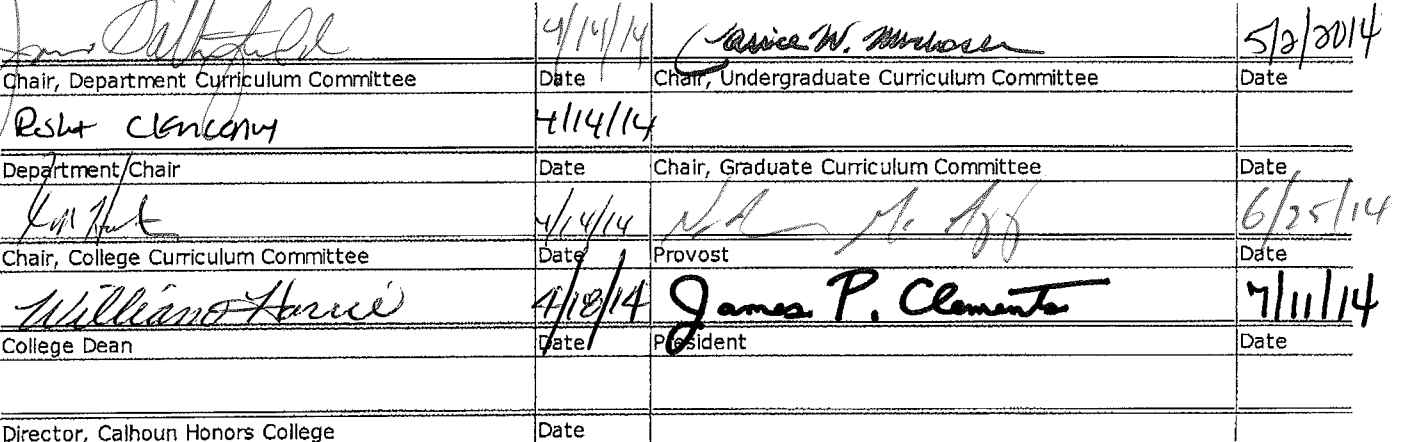 4/14/14 5/2/2014
Chair, Department Curriculum Committee Date Chair, Undergraduate Curriculum Committee Date
4/14/14
Department Chair Date Chair, Graduate Curriculum Committee Date
4/14/14 6/25/14
Chair, College Curriculum Committee Date Provost Date
4/18/14 James P. Clements 7/11/14
College Dean Date President Date
Director, Calhoun Honors College Date